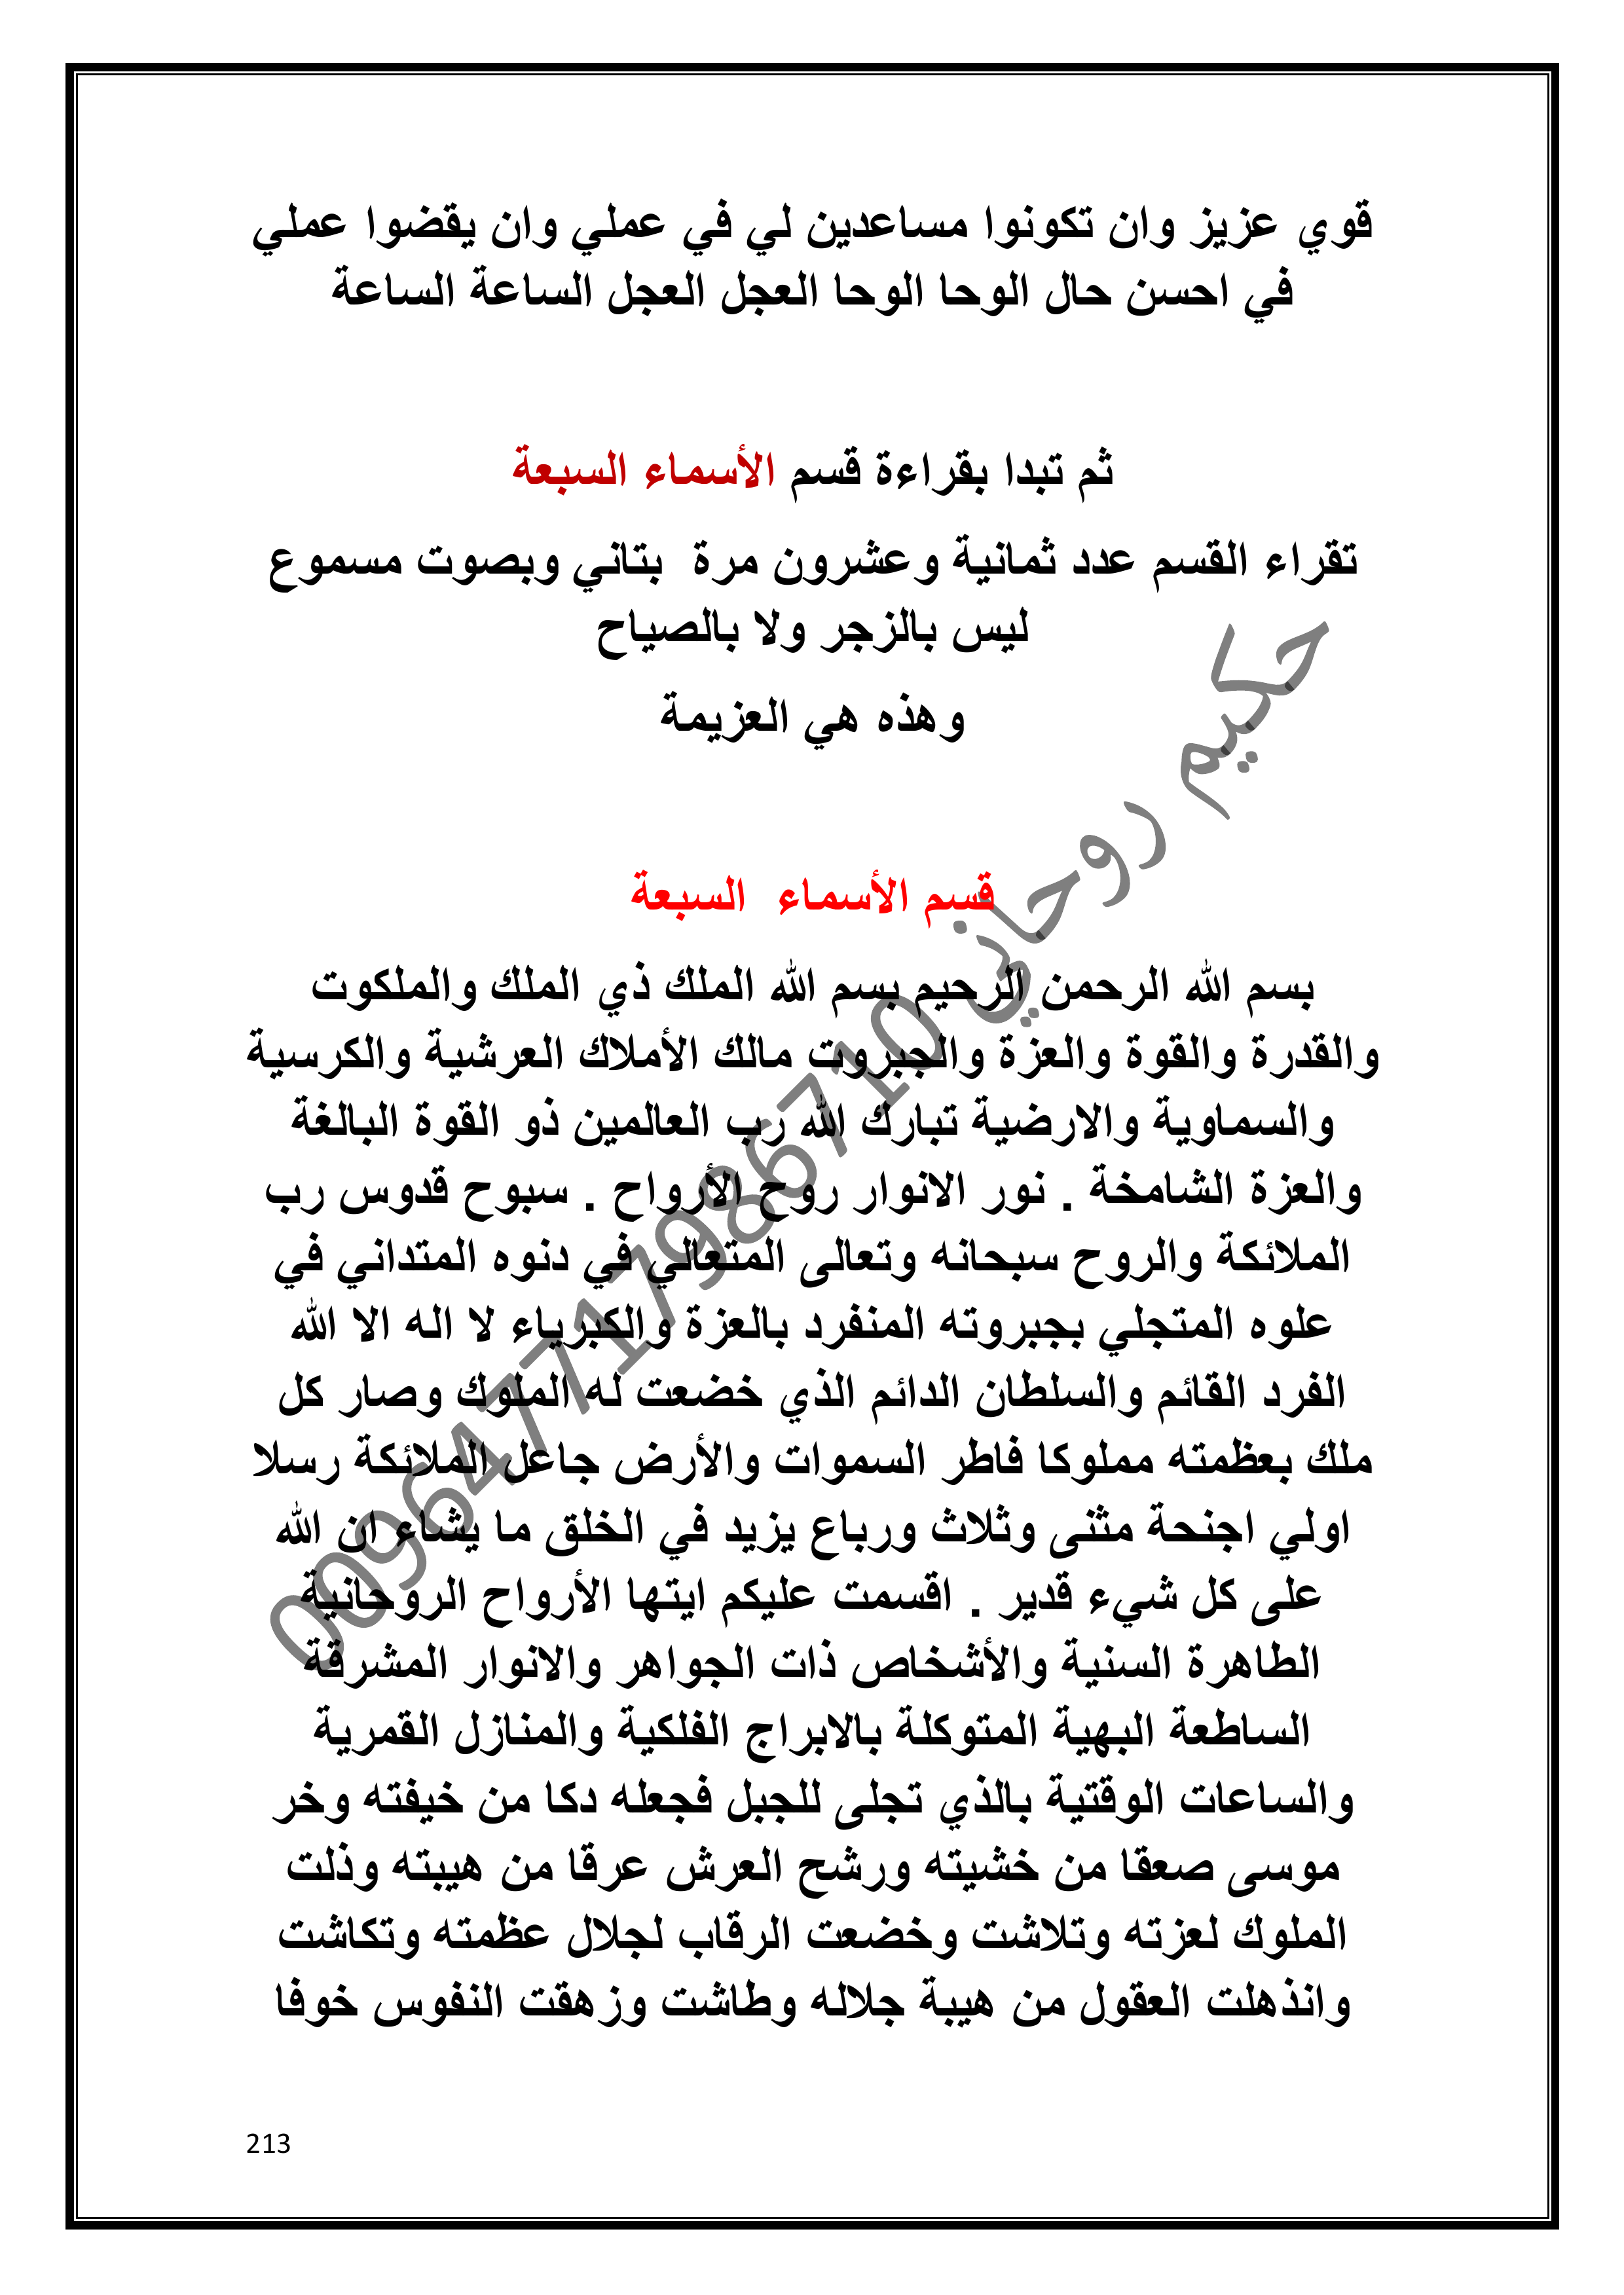 قوي عزيز وان تكونوا مساعدين لي في عملي وان يقضوا عملي
في احسن حال الوحا الوحا العجل العجل الساعة الساعة
ثم تبدا بقراءة قسم الأسماء السبعة
تقراء القسم عدد ثمانية وعشرون مرة بتاني وبصوت مسموع
ليس بالزجر ولا بالصياح
وهذه هي العزيمة
قسم الأسماء السبعة
بسم الله الرحمن الرحيم بسم الله الملك ذي الملك والملكوت
والقدرة والقوة والعزة والجبروت مالك الأملاك العرشية والكرسية
والسماوية والارضية تبارك الله رب العالمين ذو القوة البالغة
والعزة الشامخة . نور الانوار روح الأرواح . سبوح قدوس رب
الملائكة والروح سبحانه وتعالى المتعالي في دنوه المتداني في
علوه المتجلي بجبروته المنفرد بالعزة والكبرياء لا اله الا الله
الفرد القائم والسلطان الدائم الذي خضعت له الملوك وصار كل
ملك بعظمته مملوكا فاطر السموات والأرض جاعل الملائكة رسلا
اولي اجنحة مثنى وثلاث ورباع يزيد في الخلق ما يشاء ان الله
على كل شيء قدير . اقسمت عليكم ايتها الأرواح الروحانية
الطاهرة السنية والأشخاص ذات الجواهر والانوار المشرقة
الساطعة البهية المتوكلة بالابراج الفلكية والمنازل القمرية
والساعات الوقتية بالذي تجلى للجبل فجعله دكا من خيفته وخر
موسى صعقا من خشيته ورشح العرش عرقا من هيبته وذلت
الملوك لعزته وتلاشت وخضعت الرقاب لجلال عظمته وتكاشت
وانذهلت العقول من هيبة جلاله وطاشت وزهقت النفوس خوفا
حكيم روحاني 009647717986710
213